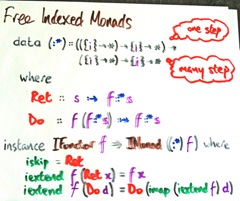 Free Indexed Monads
one step
data (:*) :: (({i}→*)→{i}→*)→
({i}→*)→{i}→*
many step
where
Ret :: s :→ f:* s
Do :: f (f:* s) :→ f:* s
instance IFunctor f ⇒ IMonad ((:*) f) where
iskip = Ret
iextend f (Ret x) = f x
iextend f (Do d) = Do (imap (iextend f) d)